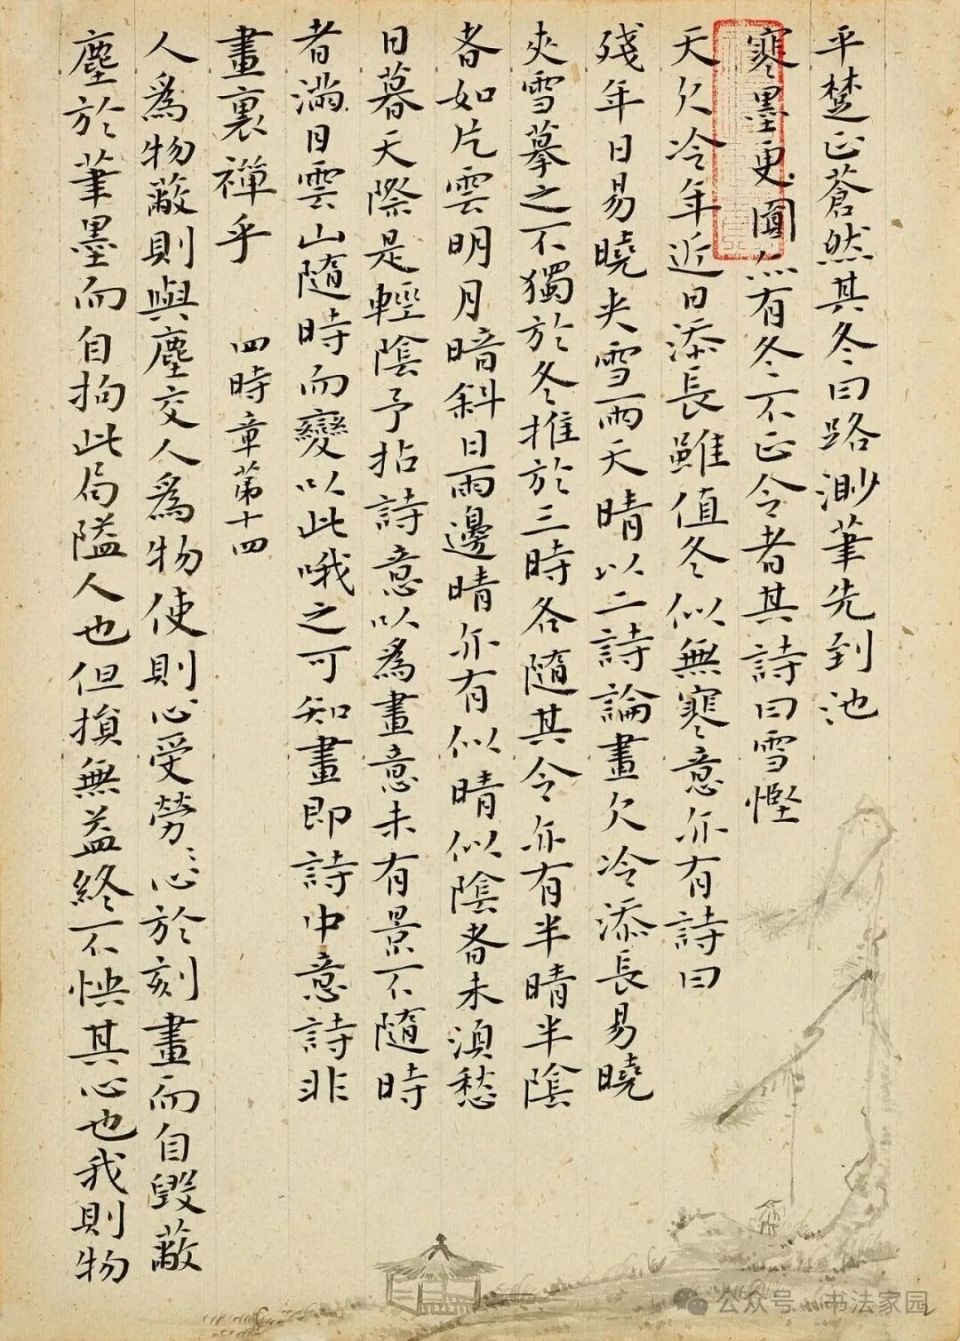 平楚正蒼然其冬曰路渺筆先到池
寒墨更圓然有冬不正令者其詩曰雪慳
天欠冷年近日添長雖值冬似無寒意亦有詩曰
殘年日易曉夾雪雨天晴以二詩論畫欠冷添長易曉
夾雪摹之不獨於冬推於三時各隨其令亦有半晴半陰
者如片雲明月暗斜日雨邊晴亦有似晴似陰者未須愁
日暮天際是輕陰予拈詩意以爲畫意未有景不隨時
者滿目雲山隨時而變以此哦之可知畫即詩中意詩非
畫裏禪乎 四時章第十四
人爲物蔽則與塵交人爲物使則心受勞〻心於刻畫而自毀蔽
塵於筆墨而自拘此局隘人也但損無益終不快其心也我則物
公众号·书法家园